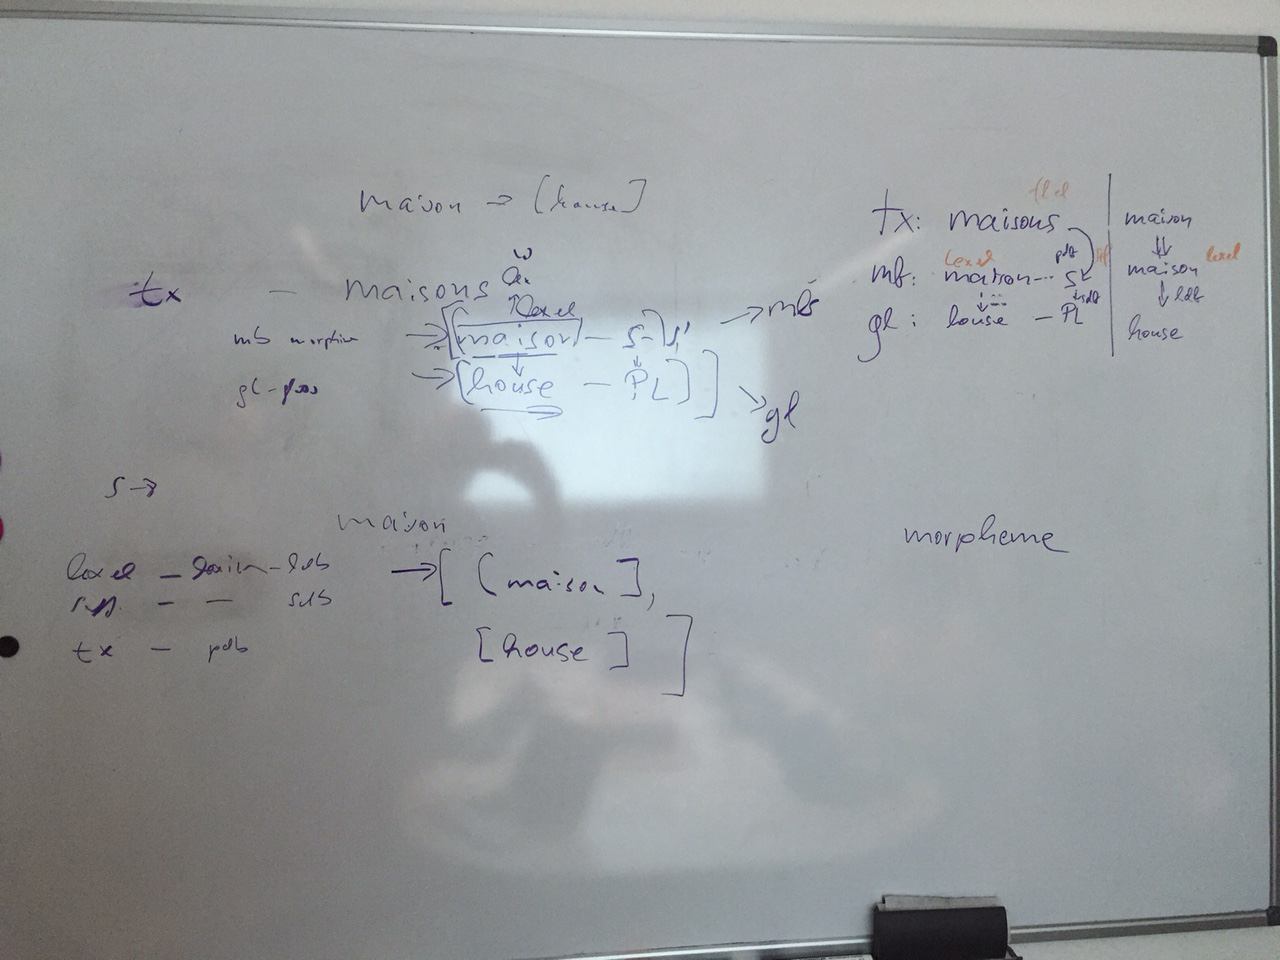 maison → [house]
tx — maisons
lexel
mb → [maison — s]
→ mb
gl - → [house — PL]]
→ gl
s →
maison
lexel — - ldb → [[maison],
— — sdb
tx — pdb [house]]
tx: maisons
lexel pdb
mb: maison - s
sdb
gl: house — PL
maison
⇓
maison lexel
↓ ldb
house
morpheme